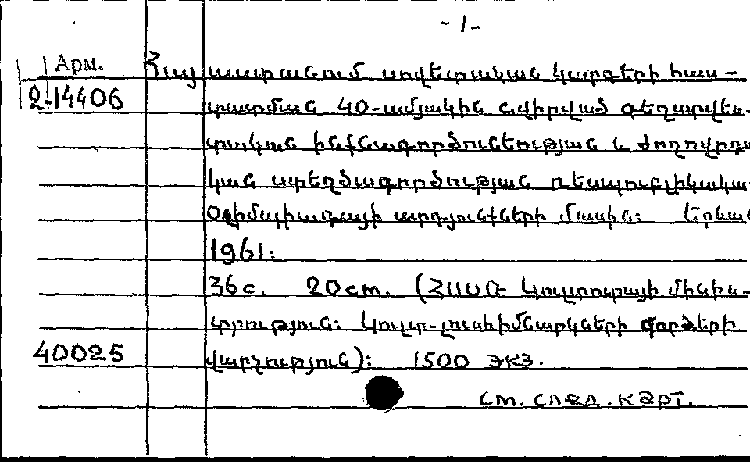 -1-
Арм. Հայաստանում սովետական կարգերի հաս-
2-14406 տատման 40-ամյակին նվիրված գեղարվես-
տական ինքնագործունեության և ժողովրդա
կան ստեղծագործության ռեսպուբլիկական
օլիմպիադայի արդյունքների մասին: Երևան
1961:
36с. 20cm. (ՀՍՍՌ Կուլտուրայի մինիս-
տրություն: Կուլտ-լուսհիմնարկների գործերի
40025 վարչություն): 1500 экз.
см. след. карт.